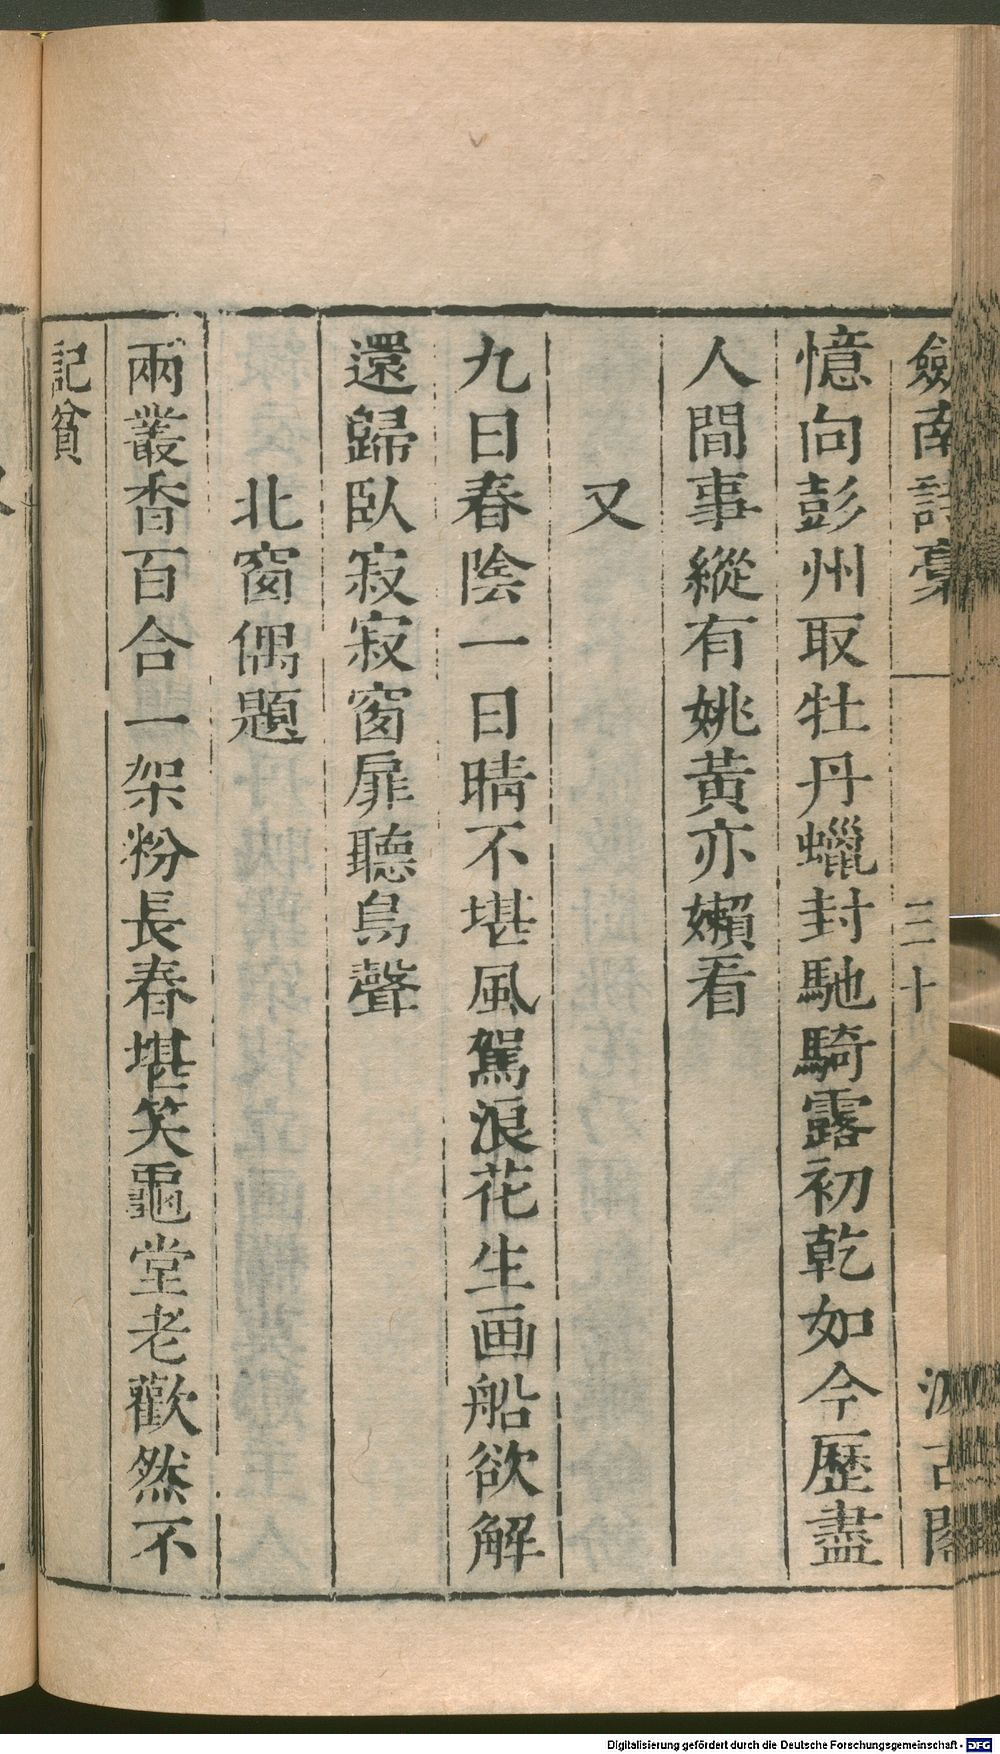 劔南詩稾 三十 汲古閣
憶向彭州取牡丹蠟封馳騎露初乾如今歷盡
人間事縱有姚黃亦嬾看
又
九日春陰一日晴不堪風駕浪花生画船欲解
還歸臥寂寂窗扉聽鳥聲
北窗偶題
兩叢香百合一架粉長春堪笑龜堂老歡然不
記貧
Digitalisierung gefördert durch die Deutsche Forschungsgemeinschaft - DFG